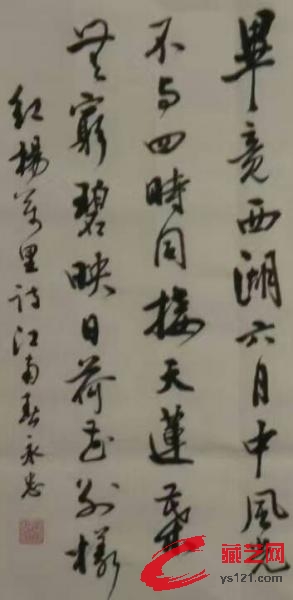 畢竟西湖六月中風光
不与四時同接天蓮葉
無窮碧映日荷花别樣
红楊萬里诗江南春永忠
藏艺网
ys121.com